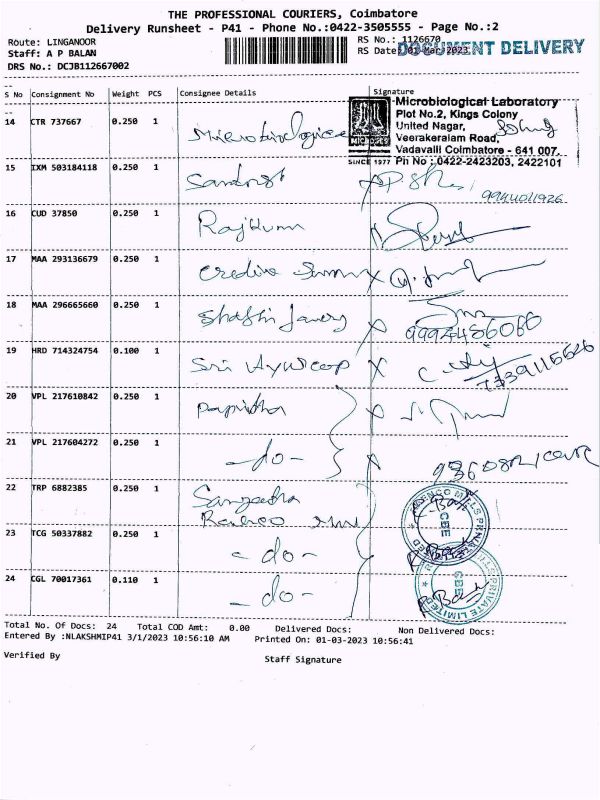 THE PROFESSIONAL COURIERS, Coimbatore
Delivery Runsheet - P41 - Phone No.:0422-3505555 - Page No.:2
Route: LINGANOOR
RS No.: 1126670
Staff: A P BALAN
RS Date: 01-Mar-2023
DOCUMENT DELIVERY
DRS No.: DCJB112667002
S No Consignment No Weight PCS Consignee Details Signature
14 CTR 737667 0.250 1
Microbiological Laboratory
Plot No.2, Kings Colony
United Nagar,
Veerakeralam Road,
Vadavalli Coimbatore - 641 007.
SINCE 1977 Ph No : 0422-2423203, 2422101
15 IXM 503184118 0.250 1
9944011926
16 CUD 37850 0.250 1 Rajkumar
17 MAA 293136679 0.250 1
18 MAA 296665660 0.250 1
19 HRD 714324754 0.100 1 Sri
20 VPL 217610842 0.250 1
21 VPL 217604272 0.250 1 -do-
22 TRP 6882385 0.250 1
23 TCG 50337882 0.250 1 -do-
CBE
24 CGL 70017361 0.110 1 -do-
CBE
Total No. Of Docs: 24 Total COD Amt: 0.00 Delivered Docs: Non Delivered Docs:
Entered By :NLAKSHMIP41 3/1/2023 10:56:10 AM Printed On: 01-03-2023 10:56:41
Verified By Staff Signature